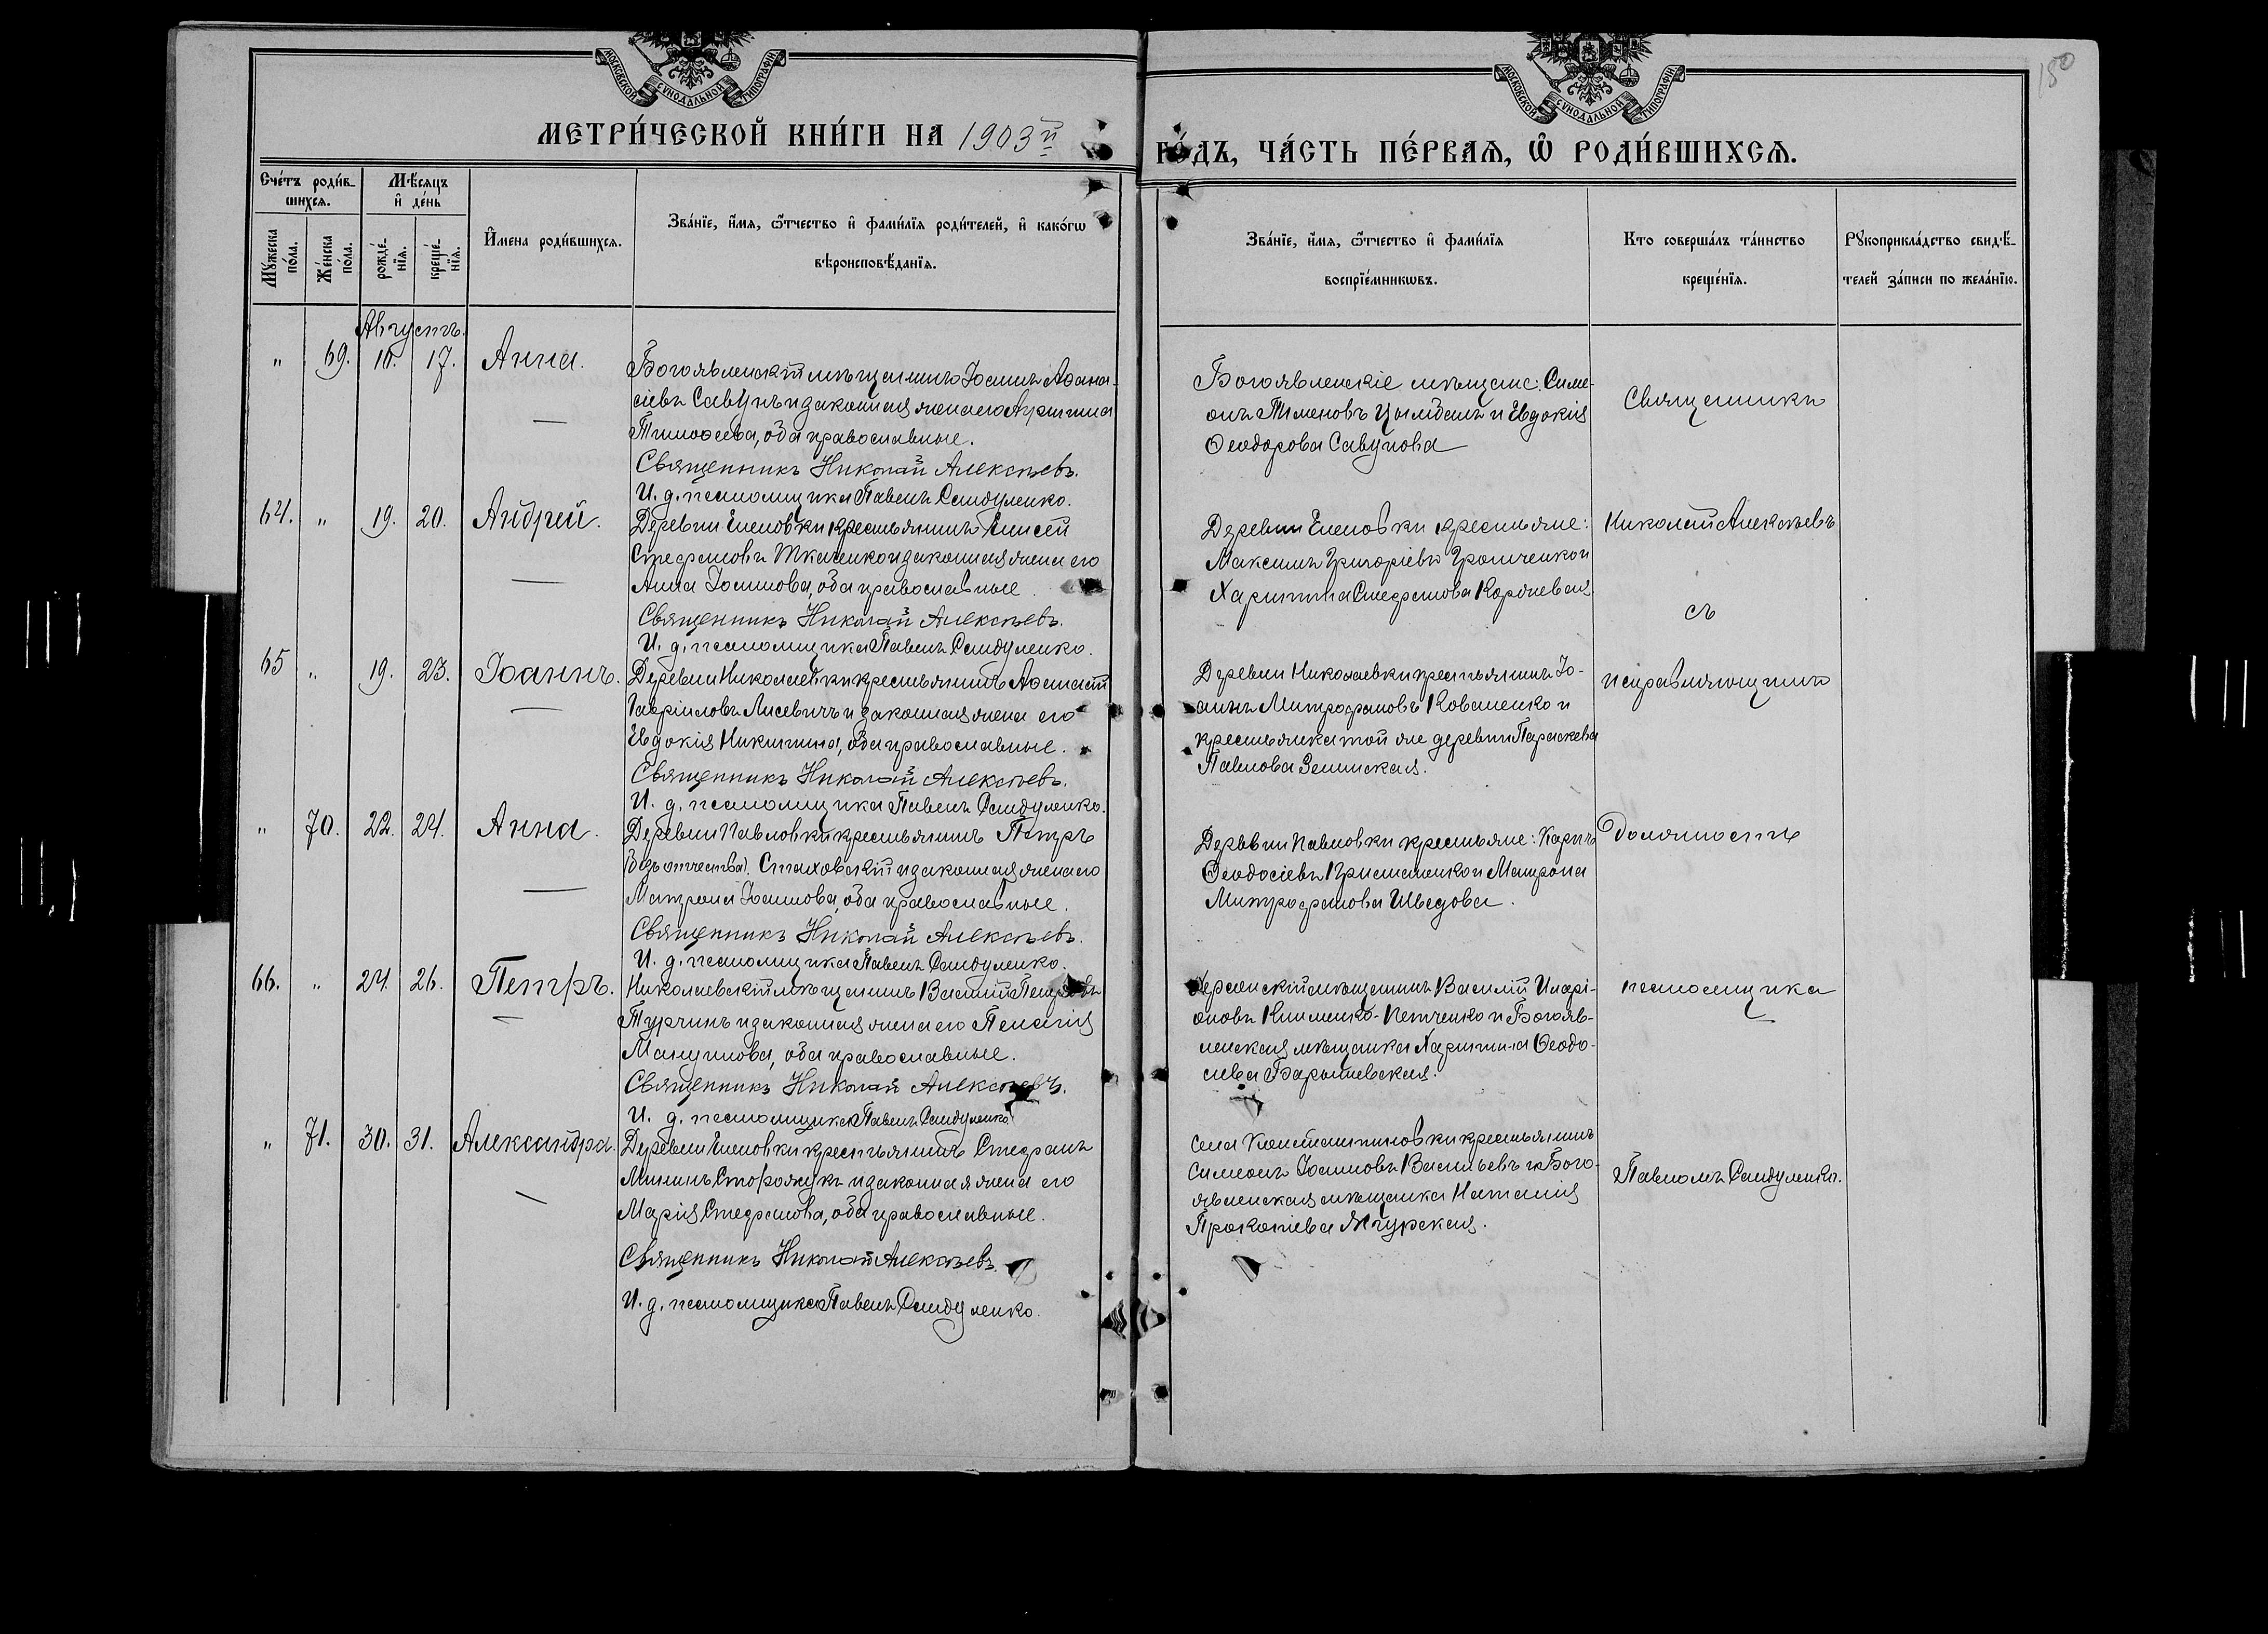 150
МОСКОВСКОЙ СѴНОДАЛЬНОЙ ТИПОГРАФІИ
МОСКОВСКОЙ СѴНОДАЛЬНОЙ ТИПОГРАФІИ
МЕТРИ́ЧЕСКОЙ КНИ́ГИ НА 1903й
ГО́ДЪ, ЧА́СТЬ ПЕ́РВАѦ, Ѡ҆ РОДИ́ВШИХСѦ.
Сче́тъ роди́в-
шихсѧ.
Мꙋ́жеска
по́ла.
Же́нска
по́ла.
Мѣ́сѧцъ
и҆ де́нь
рожде́-
нїѧ.
креще́-
нїѧ.
И҆мена роди́вшихсѧ.
Зва́нїе, и҆́мѧ, ѻ҆́тчество и҆ фами́лїѧ роди́телей, и҆ како́гѡ
вѣроисповѣ́данїѧ.
Зва́нїе, и҆́мѧ, ѻ҆́тчество и҆ фами́лїѧ
воспрїе́мникѡвъ.
Кто соверша́лъ та́инство
креще́нїѧ.
Рꙋкоприкла́дство свидѣ́-
телей за́писи по жела́нїю.
Августъ.
" 69. 16. 17. Анна.
Богоявленскій мѣщанинъ Іоаннъ Аѳана-
сіевъ Савунъ и законная жена его Аѳиппина
Тимоѳеева, оба православные.
Священникъ Николай Алексѣевъ.
И. д. псаломщика Павелъ Сандуленко.
Богоявленскіе мѣщане: Симе-
онъ Тименовъ Цымбалъ и Евдокія
Ѳеодорова Савунова
64. " 19. 20. Андрей.
Деревни Еленовки крестьянинъ Елисей
Стефановъ Ткаченко и законная жена его
Анна Іоаннова, оба православные.
Священникъ Николай Алексѣевъ.
И. д. псаломщика Павелъ Сандуленко.
Деревни Еленовки крестьяне:
Максимъ Григоріевъ Громченко и
Харитина Стефанова Корнева
65 " 19. 23. Іоаннъ.
Деревни Николаевки крестьянинъ Аѳанасій
Гавріиловъ Лисевичъ и законная жена его
Евдокія Никитина, оба православные.
Священникъ Николай Алексѣевъ.
И. д. псаломщика Павелъ Сандуленко.
Деревни Николаевки крестьянинъ Іо-
аннъ Митрофановъ Коваленко и
крестьянка той же деревни Параскева
Павлова Зелинская.
" 70. 22. 24. Анна.
Деревни Павловки крестьянинъ Петръ
(безъ отчества) Стаховскій и законная жена его
Матрона Іоаннова, оба православные.
Священникъ Николай Алексѣевъ.
И. д. псаломщика Павелъ Сандуленко.
Деревни Павловки крестьяне: Карпъ
Ѳеодосіевъ Кристаленко и Матрона
Митрофанова Шведова.
66. " 24. 26. Петръ.
Николаевскій мѣщанинъ Василій Петровъ
Турчинъ и законная жена его Пелагія
Мануилова, оба православные.
Священникъ Николай Алексѣевъ.
И. д. псаломщика Павелъ Сандуленко
Херсонскій мѣщанинъ Василій Иларі-
оновъ Клименко-Петченко и Богояв-
ленская мѣщанка Харитина Ѳеодо-
сіева Барышевская.
" 71. 30. 31. Александра.
Деревни Еленовки крестьянинъ Стефанъ
Мининъ Сторожукъ и законная жена его
Марія Стефанова, оба православные.
Священникъ Николай Алексѣевъ
И. д. псаломщика Павелъ Сандуленко.
Села Константиновки крестьянинъ
Симеонъ Іоанновъ Васильевъ и Бого-
явленская мѣщанка Наталія
Прокопіева Ягурская.
Священникъ
Николай Алексѣевъ
съ
исправляющимъ
должность
псаломщика
Павломъ Сандуленко.